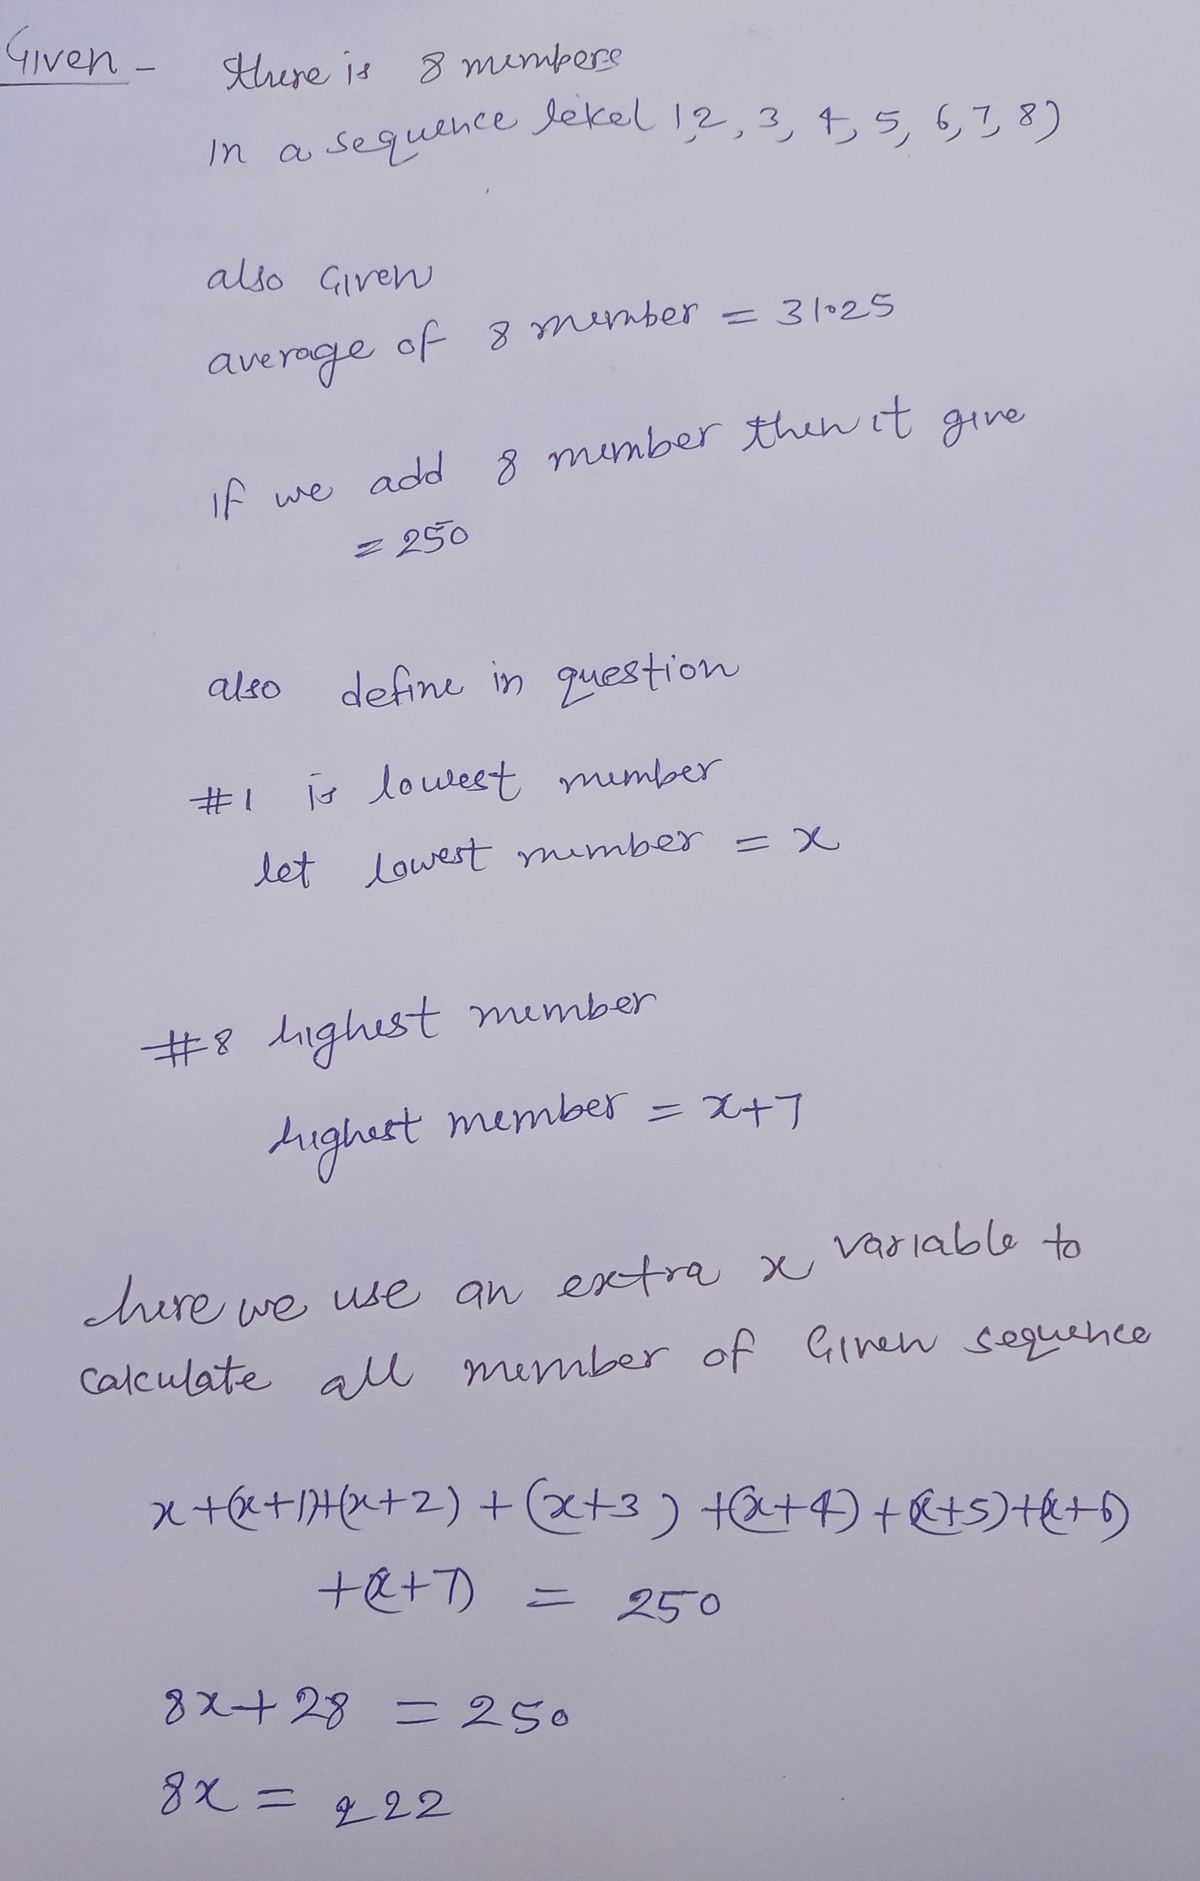 Given - there is 8 members
in a sequence lekel 1,2, 3, 4, 5, 6, 7, 8)
also Given
average of 8 member = 31.25
if we add 8 member then it give
= 250
also define in question
#1 is lowest member
let lowest member = x
#8 highest member
highest member = x+7
here we use an extra x variable to
calculate all member of Given sequence
x+(x+1)+(x+2) + (x+3) +(x+4)+(x+5)+(x+6)
+(x+7) = 250
8x+28 = 250
8x = 222